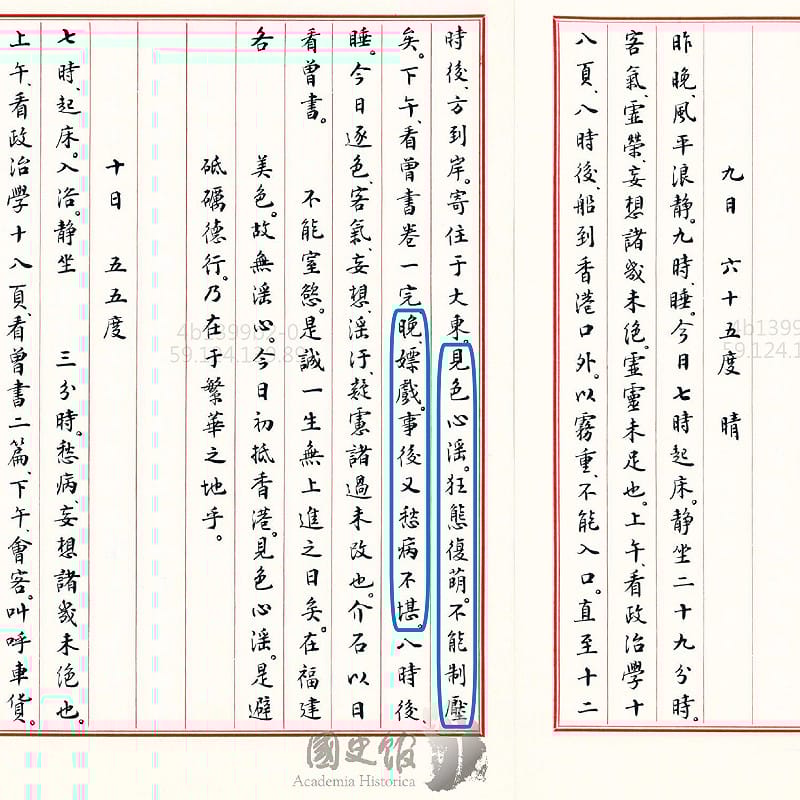 九日 六十五度 晴
昨晚、風平浪靜。九時、睡。今日七時起床。靜坐二十九分時。
客氣、靈榮、妄想諸幾未絕。靈靈未足也。上午、看政治學十
八頁、八時後、船到香港口外。以霧重、不能入口。直至十二
時後、方到岸。寄住于大東。見色心滛。狂態復萌。不能制壓
矣。下午、看曾書卷一完晚、嫖戲。事後又愁病不堪。八時後、
睡。今日逐色、客氣、妄想、滛汙、疑憲諸過未改也。介石以日
看曾書。 不能室慾。是誠一生無上進之日矣。在福建
各 美色。故無滛心。今日初抵香港。見色心滛。是避
砥礪德行。乃在于繁華之地乎。
十日 五五度
七時、起床。入浴。靜坐 三分時。愁病、妄想諸幾未絕也。
上午、看政治學十八頁、看曾書二篇、下午、會客。叫呼車貨。
國史館
Academia Historica